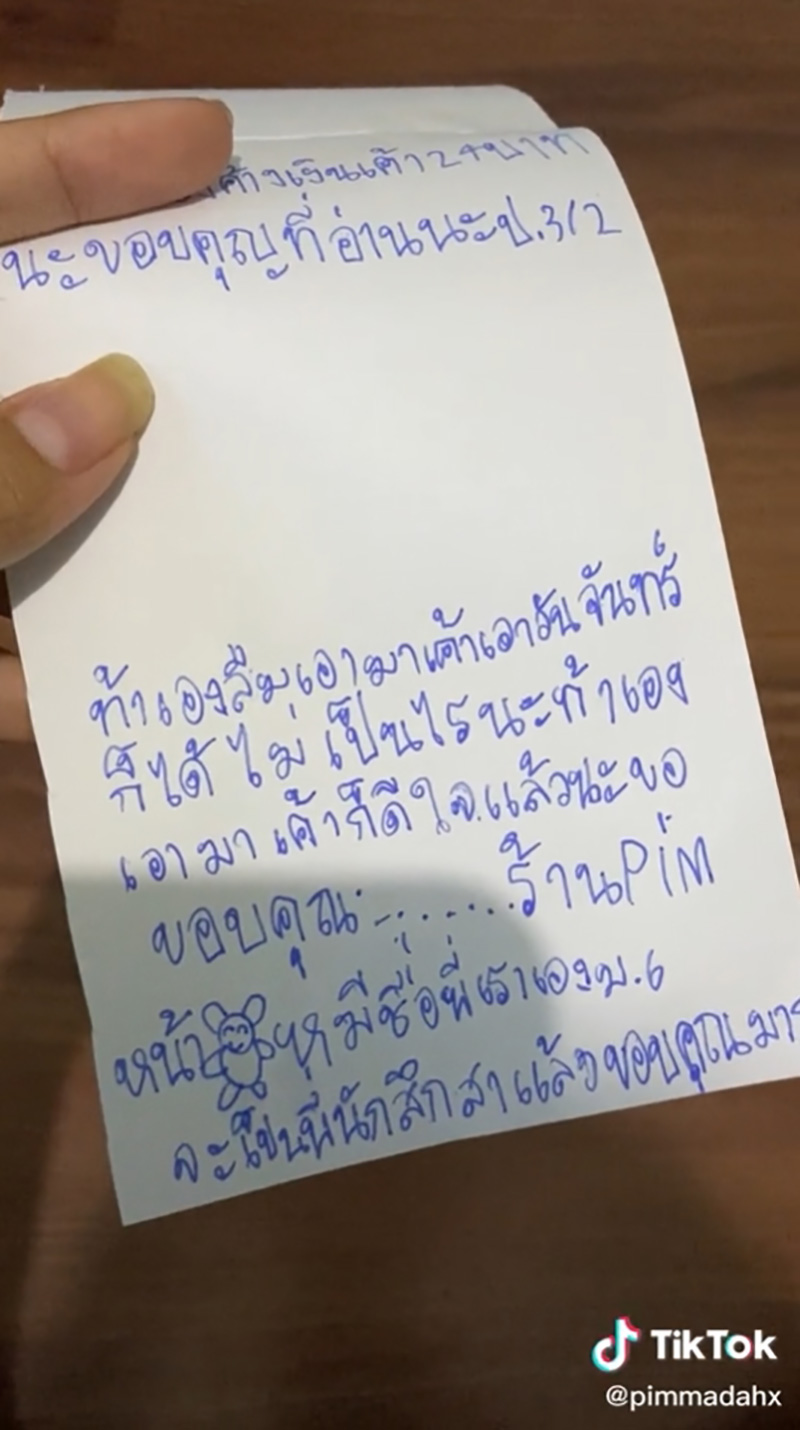 ค้างเงินเค้า 24 บาท
นะขอบคุญที่อ่านนะป.3/2
ท้าเองลืมเอามาเค้าเอาวันจันทร์
ก็ได้ ไม่เป็นไรนะท้าเอง
เอามา เค้าก็ดีใจแล้วนะขอ
ขอบคุณ........ร้านPiM
หน้า มีชื่อพี่เราเองม.6
จะเป็นพี่นักสึกสาแล้วขอบคุณมาก
TikTok
@pimmadahx